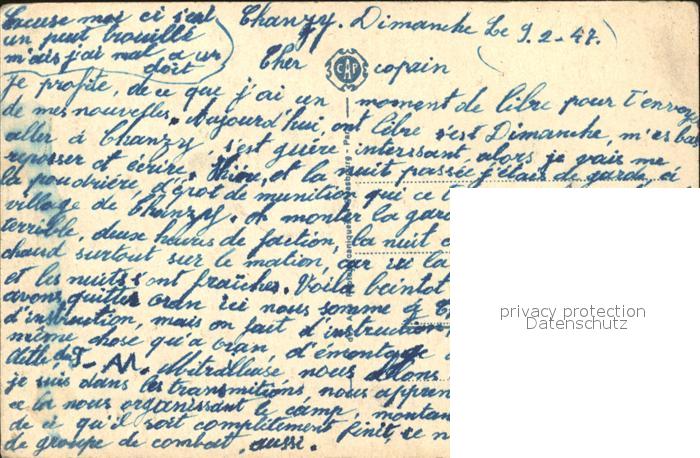 Excuse moi ci s'est
un peut brouillé
m'ais j'ai mal a un
doit
Chanzy. Dimanche Le 9.2-47.
Cher copain
CAP
Je profite, de ce que j'ai un moment de libre pour t'envoye
de mes nouvelles. Aujourd'hui, ont libre s'est Dimanche, m'es bas
aller à Chanzy s'est guère interssant, alors je vais me
reposser et écrire. et la nuit passée j'étais de garde, ci
la poudriére, dépot de munition qui, ce
village de Chanzy. monter la gar
terrible, deux heures de faction, la nuit
chaud surtout sur le mation, car ici la
et les nuits s'ont fraîches. Voila beintot
avons quitter oran ici nous somme
d'instruction, mais on fait d'instruction
même chose qu'a oran d'émontage
Mitrailleuse nous allons
je suis dans les transmitions, nous appren
a la nous organissant le camp, montan
de ce qu'il soit complètement finit, ce n
de groupe de combat, aussi.
privacy protection
Datenschutz